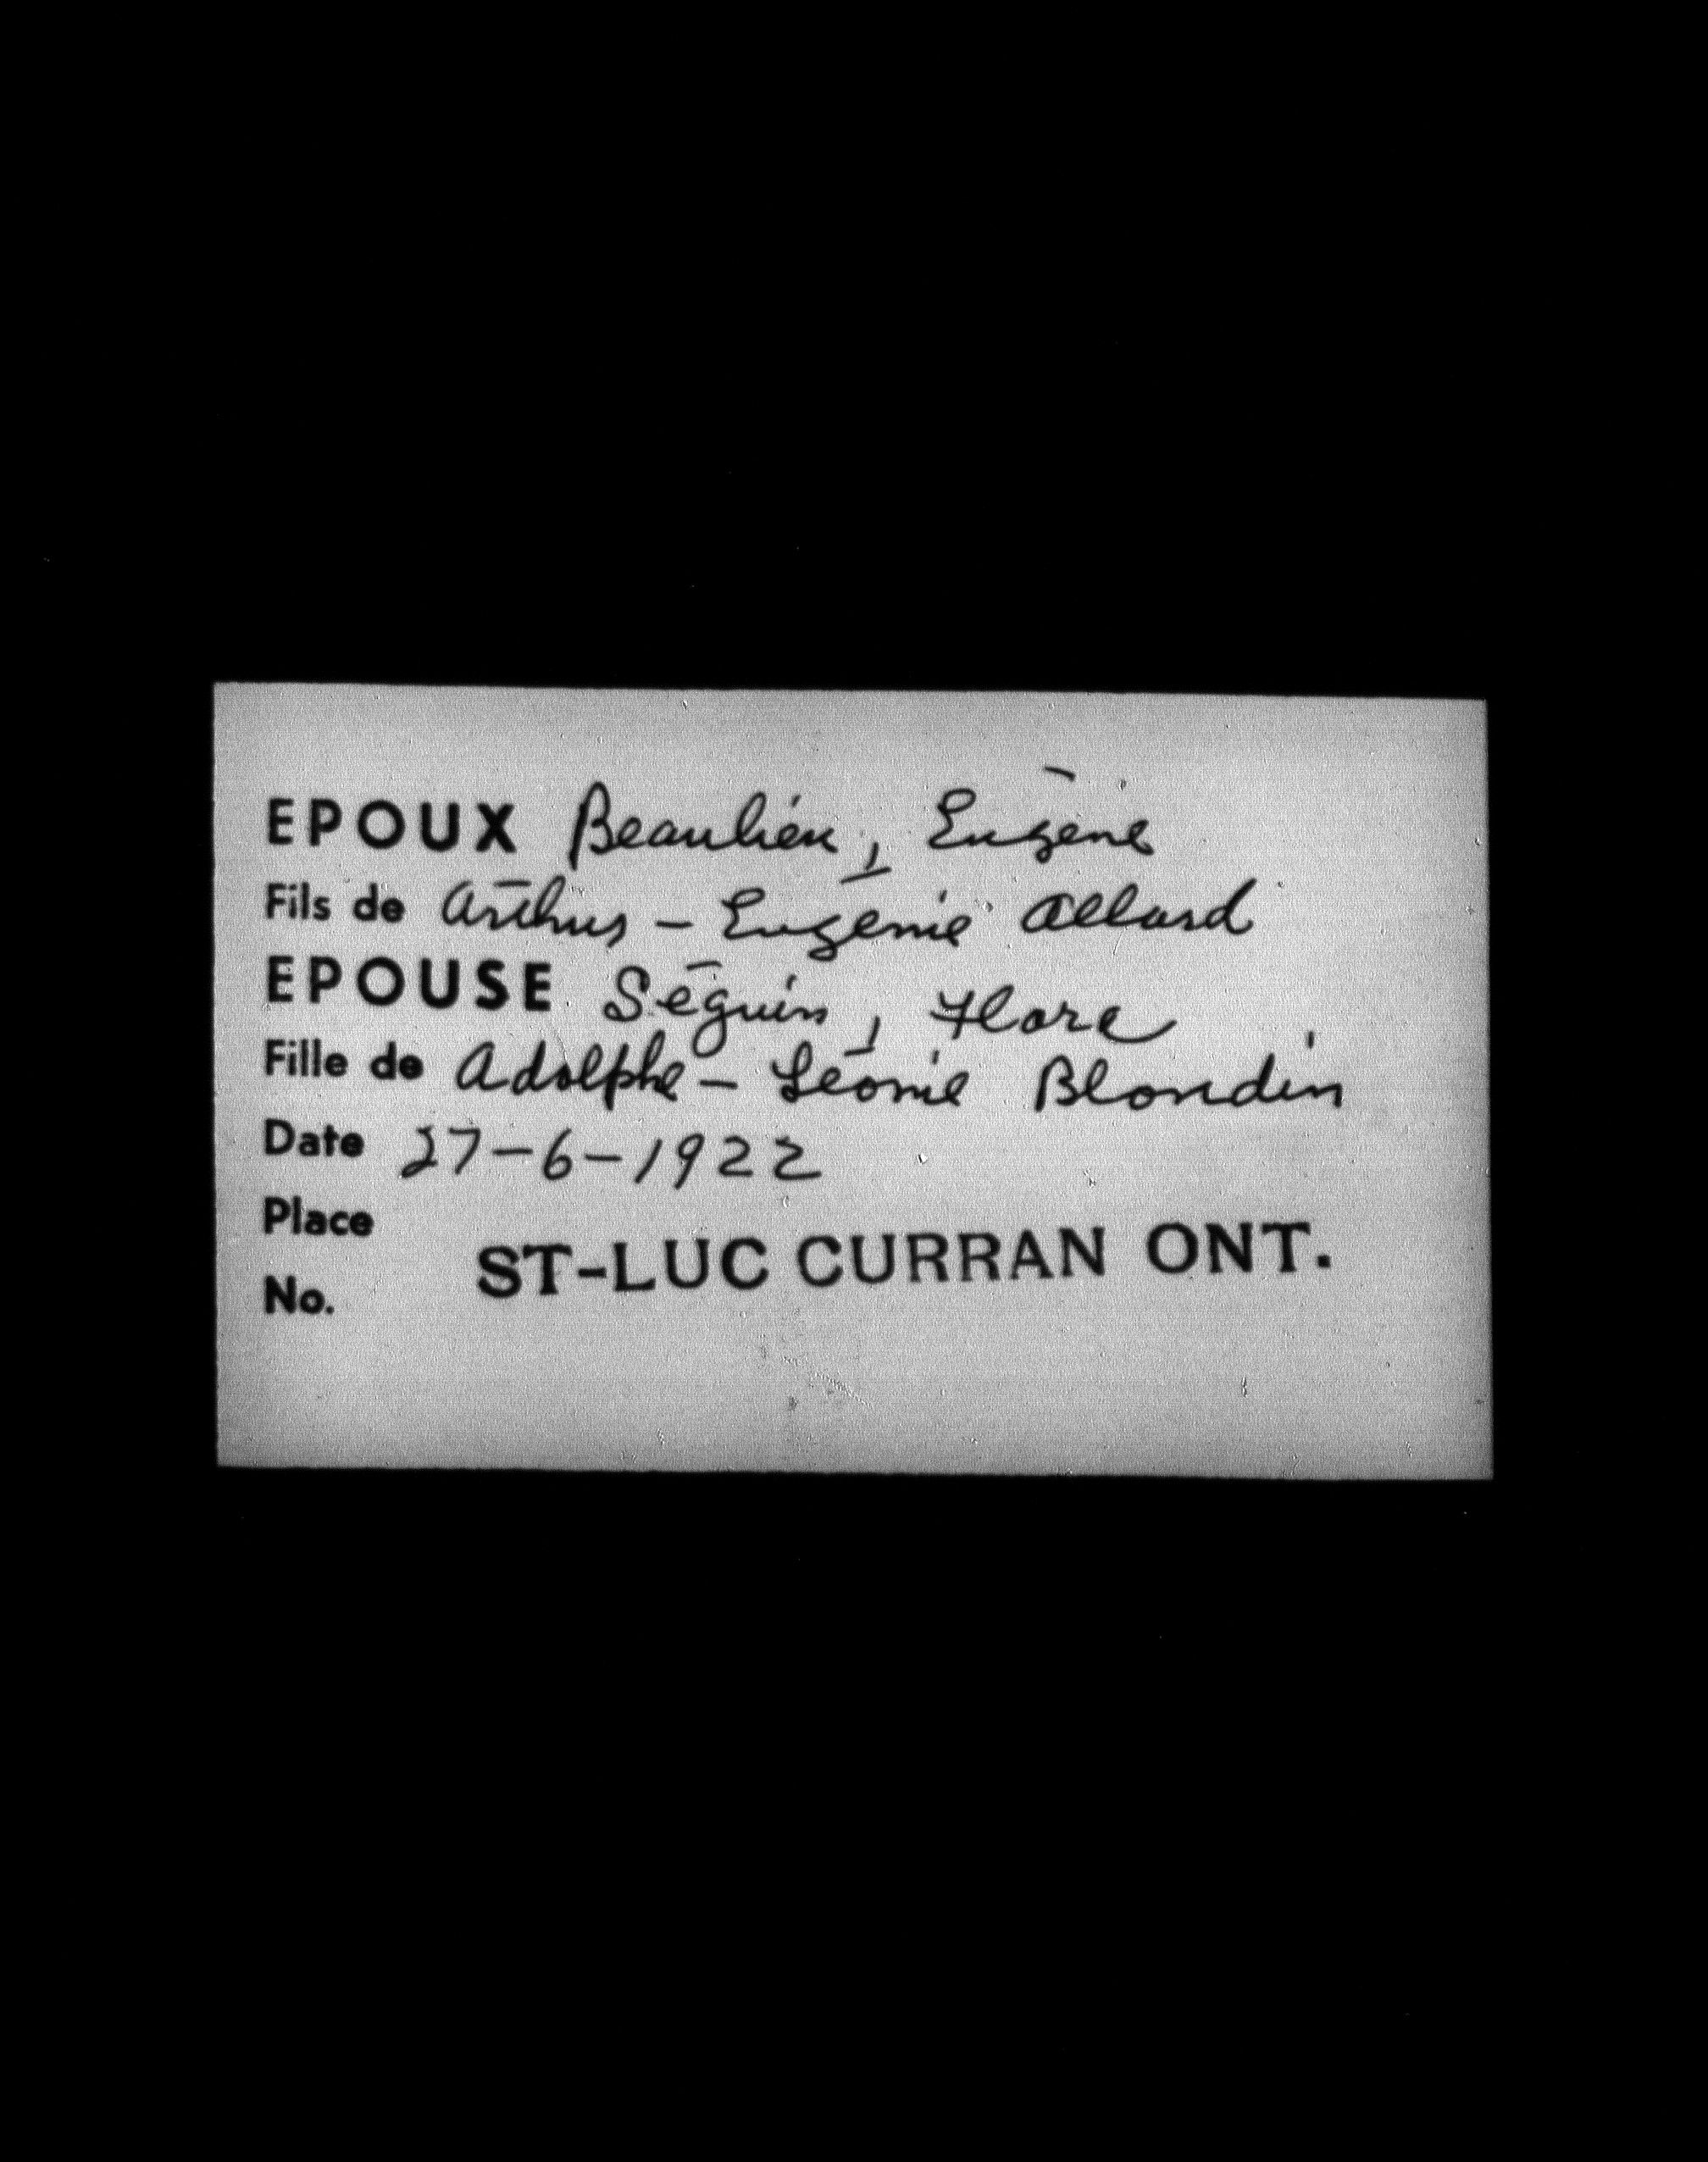 EPOUX Beaulieu, Eugène
Fils de Arthur - Eugénie Allard
EPOUSE Séguin, Flore
Fille de Adolphe - Léonie Blondin
Date 27-6-1922
Place
ST-LUC CURRAN ONT.
No.